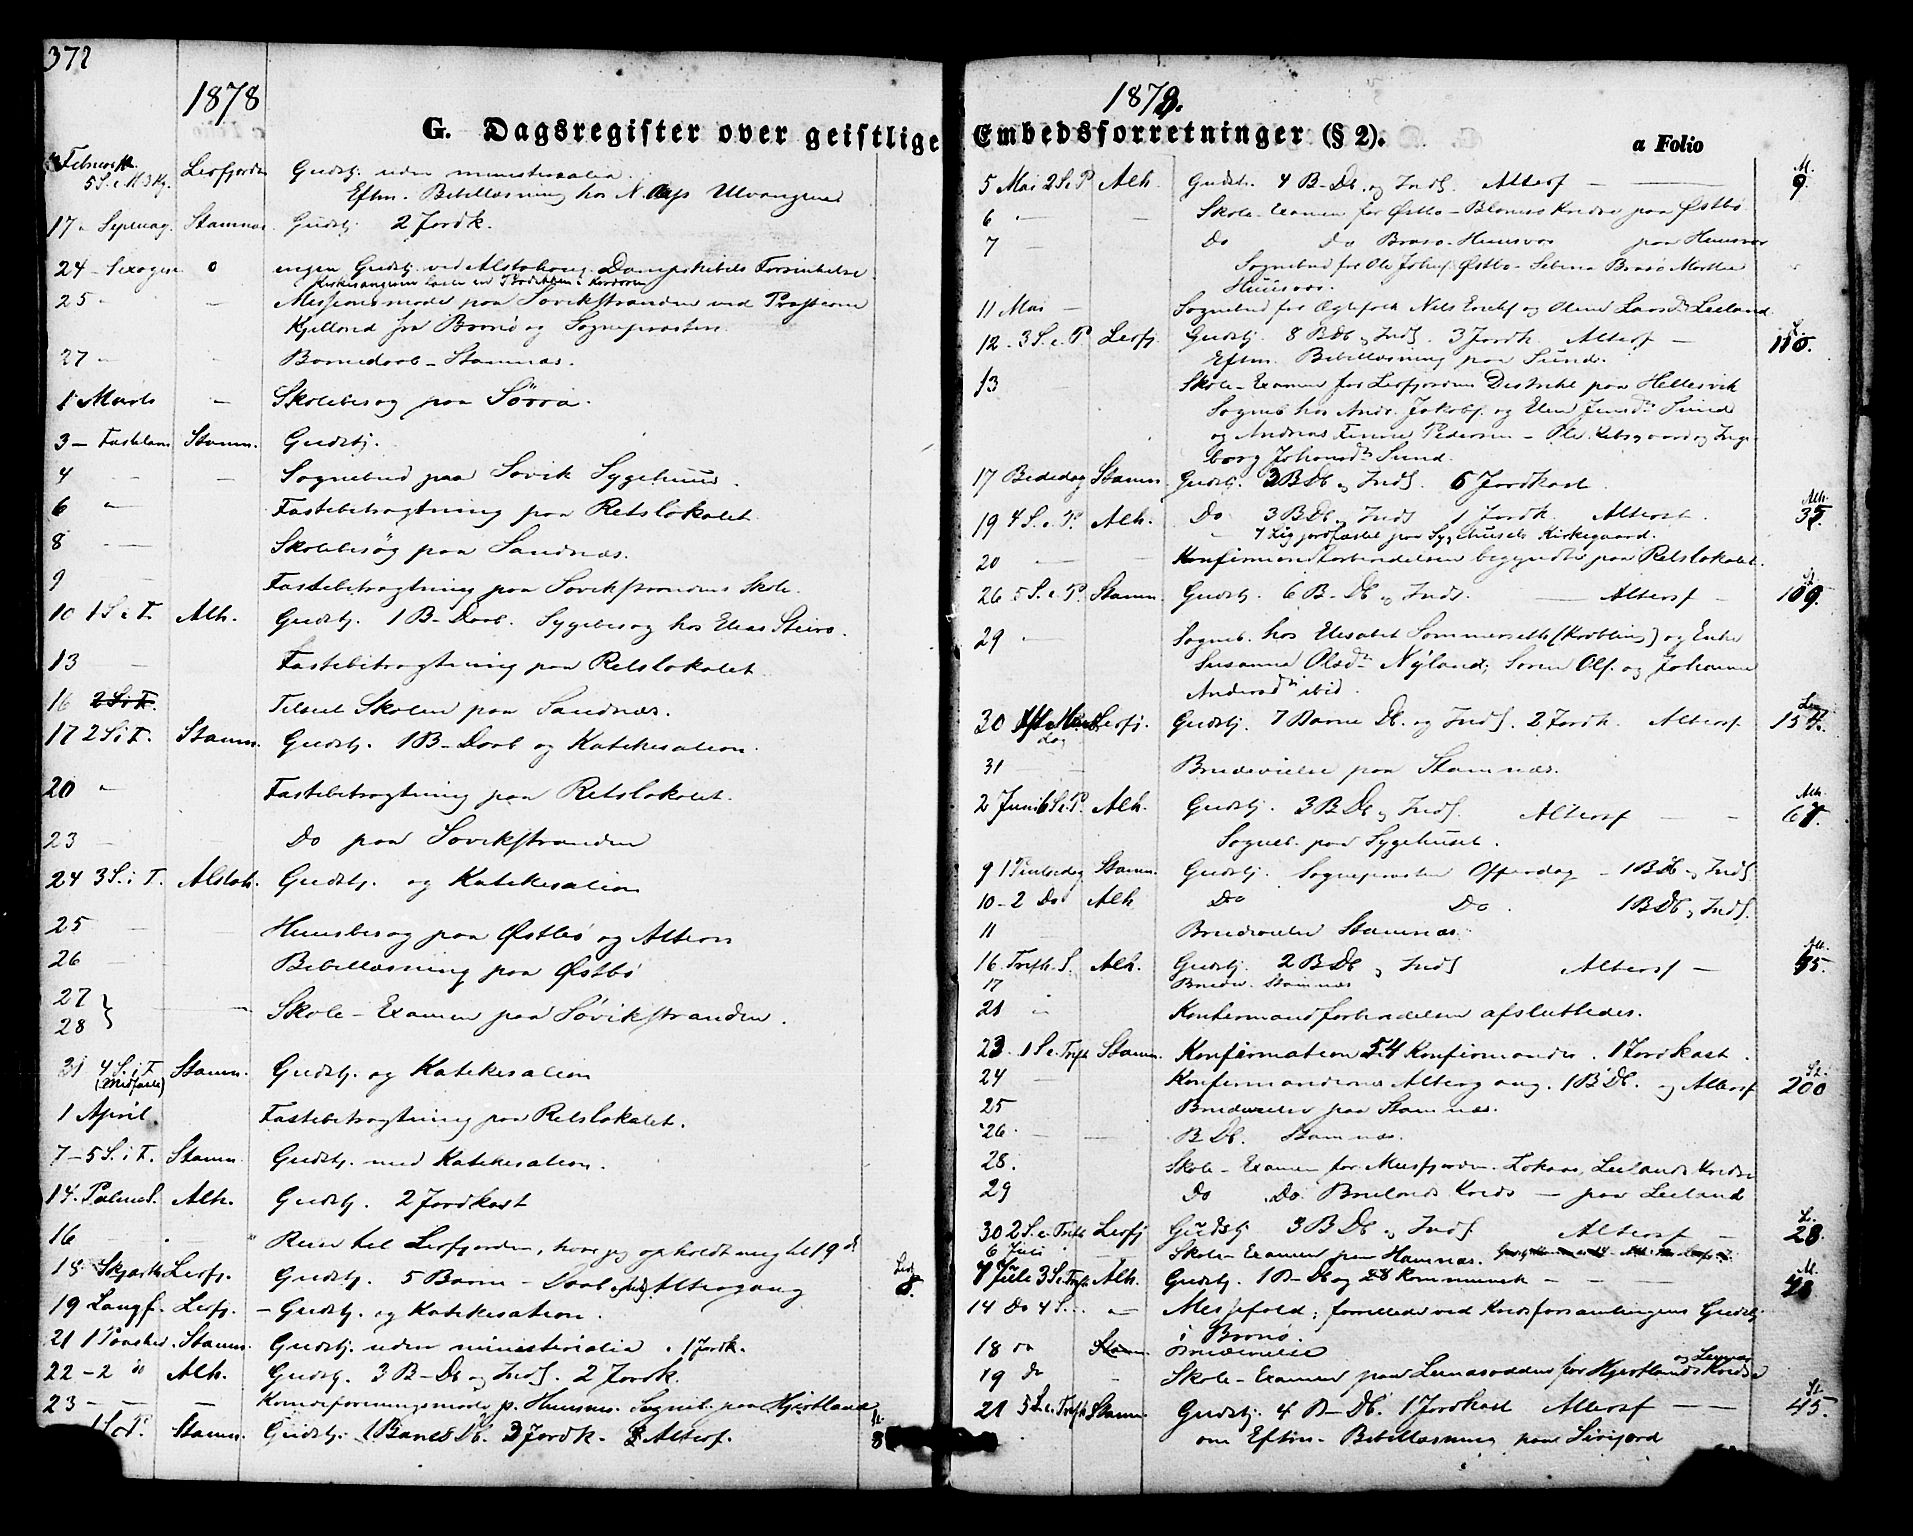 372
1878
G. Dagsregister over geistlige
Februar
5 S. e H 3 Kg. Leirfjorden Gudstj. uden ministerialia.
Eftm. Bibellæsning hos N. Ulvangene
17 - Septuag. Stamnæs Gudstj. 2 Jordk.
24 - Sexages 0 ingen Gudstj. ved Alstahoug. Dampskibets Forsinkelse
25 - Missionsmøde paa Søvikstranden ved Præsterne
Kjelland fra Brønø og Sognepræsten.
27 - Barnedaab - Stamnæs.
1 Marts - Skolebesøg paa Sørra.
3 - Fastelavn Stamn. Gudstj.
4 - Sognebud paa Søvik Sygehuus.
6 - Fastebetragtning paa Retslokalet
8 - Skolebesøg paa Sandnæs.
9 Fastebetragtning paa Søvikstrandens Skole.
10 1 S. i F. Alh. Gudstj. 1 B-Daab. Sygebesøg hos Elias Steiro.
13 Fastebetragtning paa Retslokalet
16 2 S. i F. Tilseet Skolen paa Sandnæs.
17 2 S. i F. Stamn. Gudstj. 1 B-Daab og Katekisation.
20 " Fastebetragtning paa Retslokalet.
23 - Do paa Søvikstranden
24 3 S. i F. Alstah. Gudstj. og Katekisation
25 Huusbesøg paa Østbø og Altern
26 Bibellæsning paa Østbø
27
28 } Skole-Examen paa Søvikstranden.
31 4 S. i F. Stamn. Gudstj. og Katekisation
(Midfaste)
1 April Fastebetragtning paa Retslokalet.
7 - 5 S. i F. Stamn. Gudstj. med Katekisation.
14. Palmes. Alh. Gudstj. 2 Jordkast
16 Reise til Leirfjorden, hvor jeg opholdt mig til 19 d
18 Skjærth Leirfj. Gudstj. 5 Barne-Daab Altergang 8.
19 Langf. Leirfj. - Gudstj. og Katekisation.
21 1 Paaske. Stamn. Gudstj. uden ministerialia. 1 Jordk.
22 - 2 " Alh. Gudstj. 3 B-Db og Inds. 2 Jordk.
23 - - - p. Huusnes. Sogneb. paa Hjartland
Stamn. Gudstj. 1 Barns Db. 3 Jordk. Altersf. 8
1878.
Embedsforretninger (§ 2).
a Folio
5 Mai 2 S. e P Alh. Gudstj. 4 B-Db. og Inds. Altersf - 9.
6 - Skole-Examen for Østbø-Blomsø Kreds paa Østbø
7 - Do Do Brasø-Huusvær paa Huusvær
Sognebud for Ole Johns. Østbø - Brasø
Huusvær.
11 Mai - Sognebud for Ægtefolk Nels Erichs. og Olene Larsd. Leiland
12. 3 S. e. P Leirfj. Gudstj. 8 B Db. og Inds. 3 Jordk. Altersf - 110.
Eftm. Bibellæsning paa Sund.
13 Skole-Examen for Leirfjorden Distrikt paa Hellesvik
Sogneb hos Andr. Jakobs. og Elen Jensd. Sund
og Andreas Pedersen - Ole og Inge
borg Johansd. Sund.
17 Bededag Stamn Gudstj. 3 B Db og Inds. 6 Jordkast.
19 4 S. e. P. Alh. Do 3 B Db. og Inds 1 Jordk. Altersf. 35.
1 Lig jordfæstet paa Sygehusets Kirkegaard.
20 Konfirmandforberedelsen begyndte paa Retslokalet.
26 5 S. e. P. Stamn. Gudstj. 6 B-Db og Inds. Altersf - 109.
29 Sogneb. hos Elisabet Sommerseth og Enke
Susanna Olsd. Nyland; Søren Ols. og Johanna
Andersd. ibid.
30 Leirfj. Gudstj. 7 Barne Db. og Inds. 2 Jordk. Altersf 154.
31 Brudevielse paa Stamnæs.
2 Juni 6 S. e P. Alh. Gudstj. 3 B Db. og Inds. Altersf - - 67.
Sogneb. paa Sygehuset.
9 1 Pintsedag Stamn. Gudstj. Sognepræsten Offerdag - 1 B Db og Inds
10 - 2 Do Alh Do Do. 1 B Db og Inds.
11 Brudevielse Stamnæs.
16. Trefh. S. Alh. Gudstj. 2 B Db og Inds Altersf - 55.
17 Brudev. Stamnæs
21 " Konfirmandforberedelsen afsluttedes.
23. 1 S e Trefh Stamn. Konfirmation 54 Konfirmander. 1 Jordkast.
24 - Konfirmandernes Altergang. 1 B Db. og Altersf 200
25 Brudevielse paa Stamnæs.
26. - B Db. Stamnæs.
28. Skole-Examen for Meisfjorden. Leilands Kredse
29 Do Do. Kreds - paa Leiland
30 2 S. e. Trefh Leirfj Gudstj 3 B Db og Inds Altersf - 28.
6 Juli Skole-Examen paa Hamnæs.
7 Juli 3 S e Trefh. Alh. Gudstj. 1 B-Db og 28 Kommunik - - -
14 Do 4 S. - Messefald; forrettede ved Kredsforsamlingens Gudstj
i Brønø.
18 do Stamn Brudevielse
19 do Skole-Examen paa for Hjartlands Kredse
21 5 S. e. Trefh Stamn. Gudstj. 4 B-Db. 1 Jordkast Altersf - - 45.
om Eftm. Bibellæsning paa